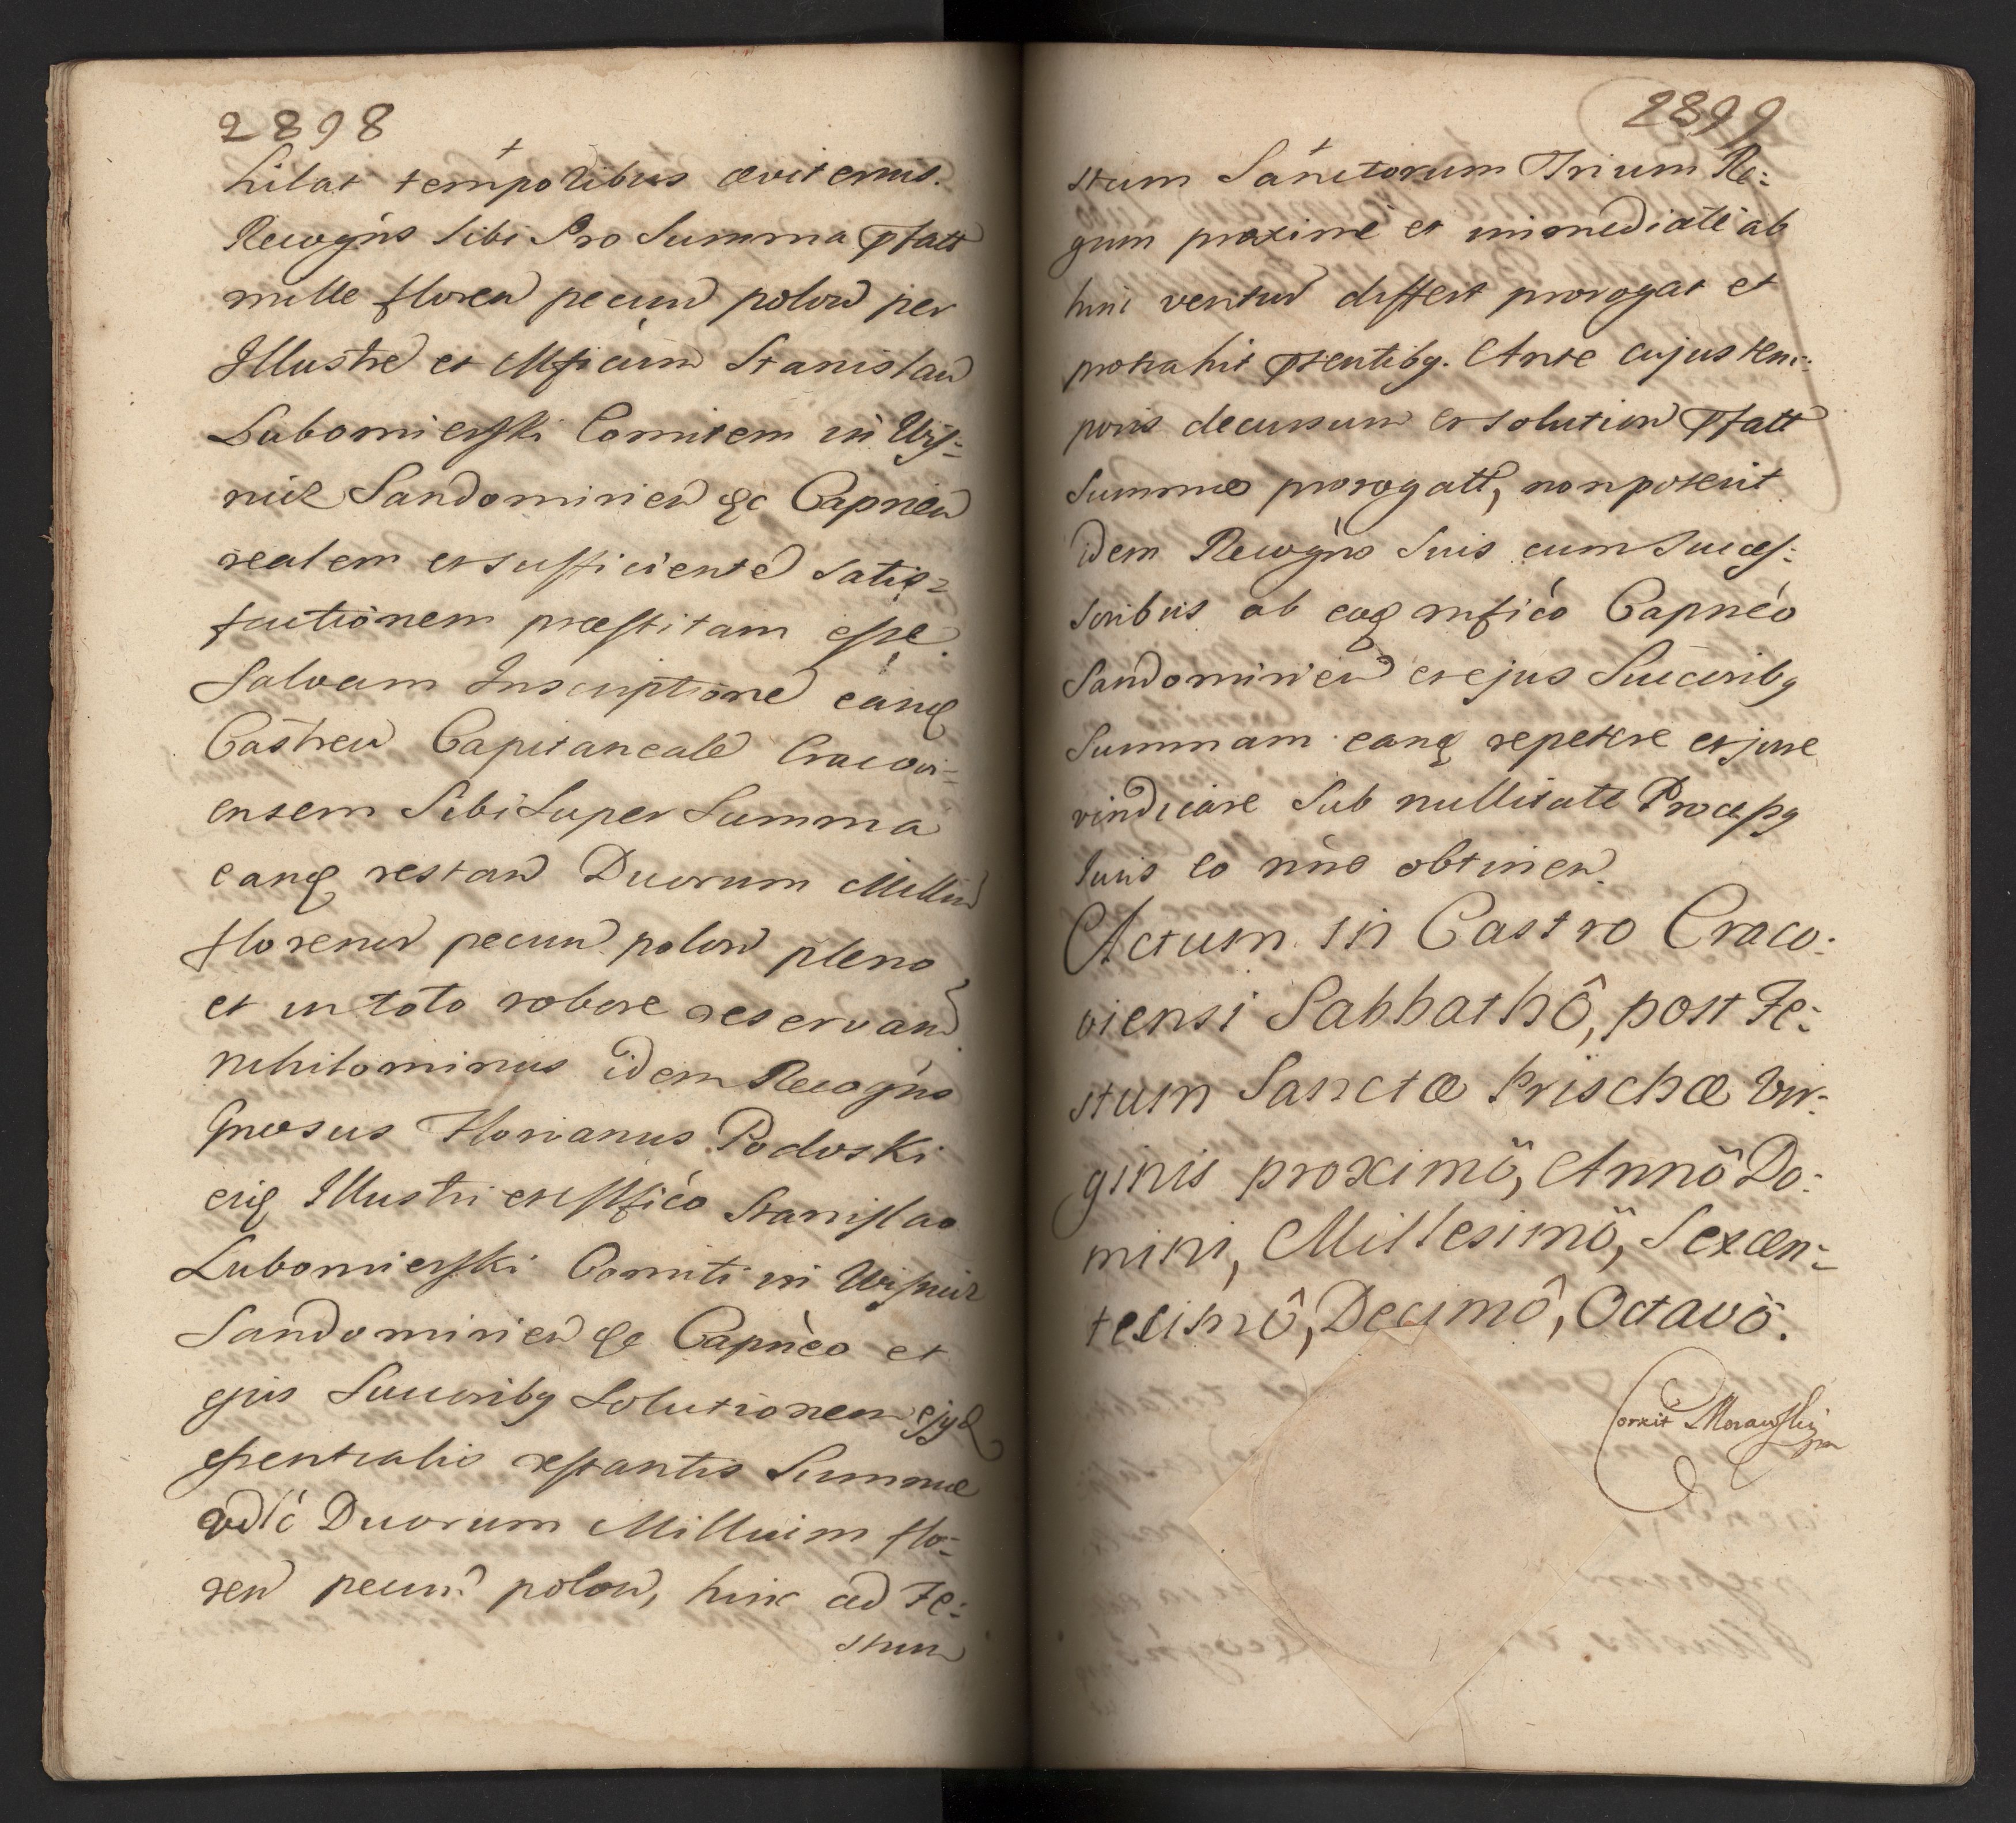 2898
hilat temporibus æviternis.
Recogns sibi Pro Summa Pfatt
mille floren pecun polon per
Illustre et Mficum Stanislau
Lubomierski Comitem in Wis=
nicz Sandomirien &c Capneu
realem et sufficiente satis=
factionem præstitam esse
Salvam Inscriptione eanq
Castren Capitaneale Cracovi=
ensem Sibi Super Summa
eanq restan Duorum Milliu
florenor pecun polon pleno
et in toto robore reservan
nihilominus idem Recogns
Gnosus Florianus Podoski
eiq Illustri et Mfico Stanislao
Lubomierski Comiti in Wisnicz
Sandomirien &c Capneo et
ejus Succoribg Solutionem ejgq
essentialis restantis Summæ
Duorum Millium flo=
ren pecun polon, hinc ad Fe=
stum
2899
stum Sanctorum Trium Re=
gum proxime et immediate ab
hinc ventur differt prorogat et
protrahit Pntibg. Ante cujus tem=
poris decursum et solution Pfatt
Summæ prorogatt, non poterit
idem Recogns Suis cum Succes=
soribus ab eoq mfico Capneo
Sandomirien et ejus Succoribg
Summam eanq repetere et jure
vindicare Sub nullitate Processg
Juris eo nno obtinen
Actum in Castro Craco=
viensi Sabbathô, post Fe=
stum Sanctæ Prischæ Vir=
ginis proximô, Annô Do=
mini, Millesimô, Sexcen=
tesimô, Decimô, Octavô.
Correxit Morawski